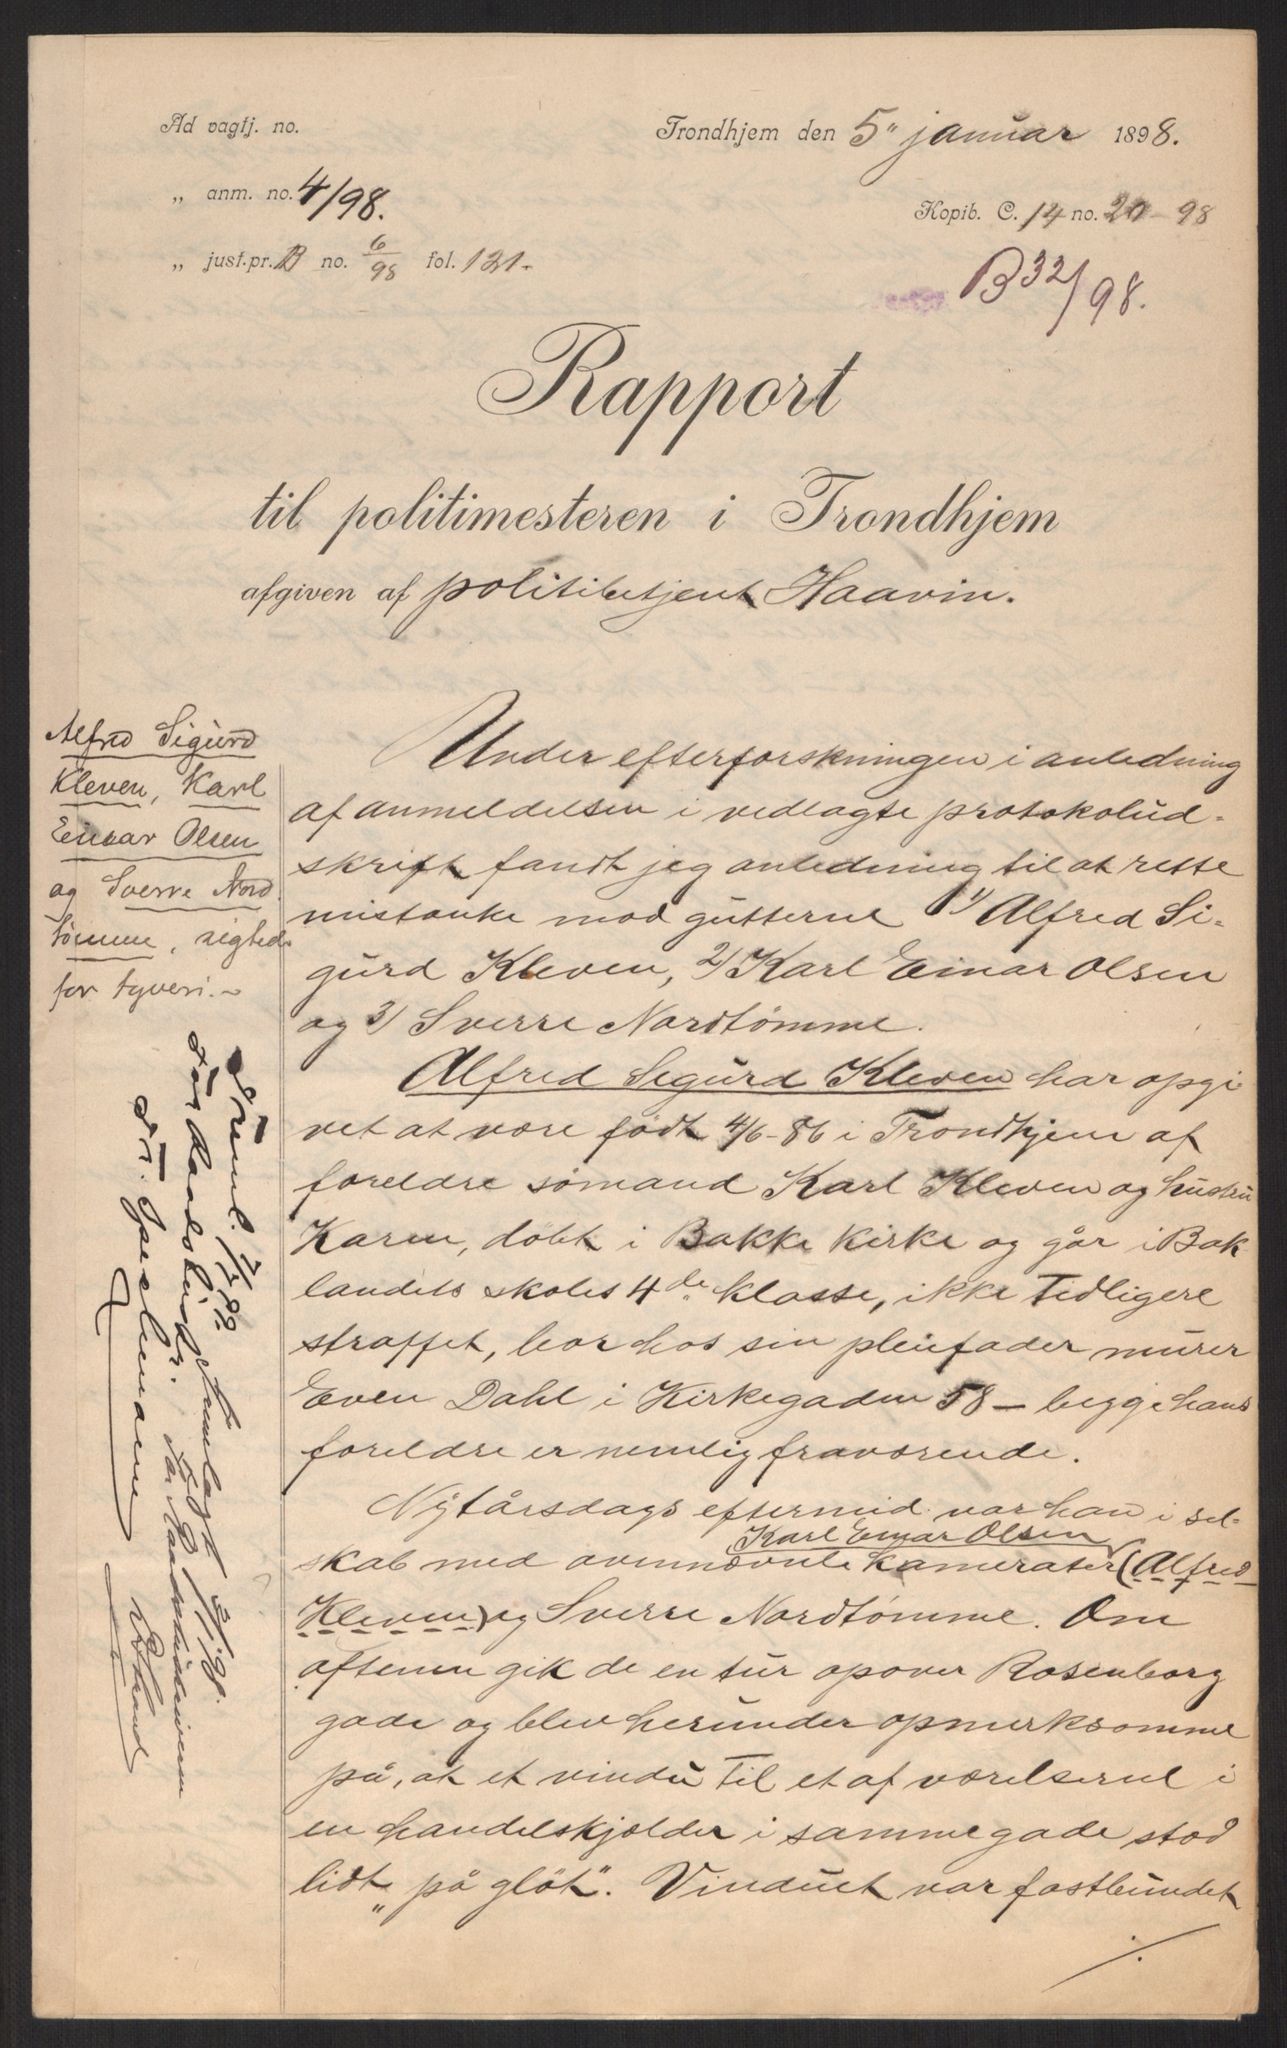 Ad vagtj. no.
Trondhjem den 5" januar 1898.
„ anm. no. 4/98.
Kopib. C. 14 no. 20 - 98
„ just.pr. B no. 6/98 fol. 121-
B 32/98.
Rapport
til politimesteren i Trondhjem
afgiven af politibetjent Haavin.
Alfred Sigurd
Kleven, Karl
Einar Olsen
og Sverre Nord
tömme, sigted
for tyveri.-
Under efterforskningen i anledning
af anmeldelsen i vedlagte protokolud-
skrift fandt jeg anledning til at rette
mistanke mod gutterne 1/ Alfred Si-
gurd Kleven, 2/ Karl Einar Olsen
og 3/ Sverre Nordtömme.
Alfred Sigurd Kleven har opgi
vet at være født 4/6-86 i Trondhjem af
foreldre sömand Karl Kleven og hustru
Karen, döbt i Bakke kirke og går i Bak
landets skoles 4de klasse, ikke tidligere
straffet, bor hos sin pleiefader murer
Even Dahl i Kirkegaden 58 - begge hans
foreldre er nemlig fraværende.
Nytårsdags eftermid. var han i sel-
Karl Einar Olsen
skab med ovennævnte kamerater (Alfred
Kleven) og Sverre Nordtömme. Om
aftenen gik de en tur opover Rosenborg
gade og blev herunder opmerksomme
på, at et vindu til et af værelserne i
en handelskjelder i samme gade stod
lidt „på glöt". Vinduet var fastbundet
./.